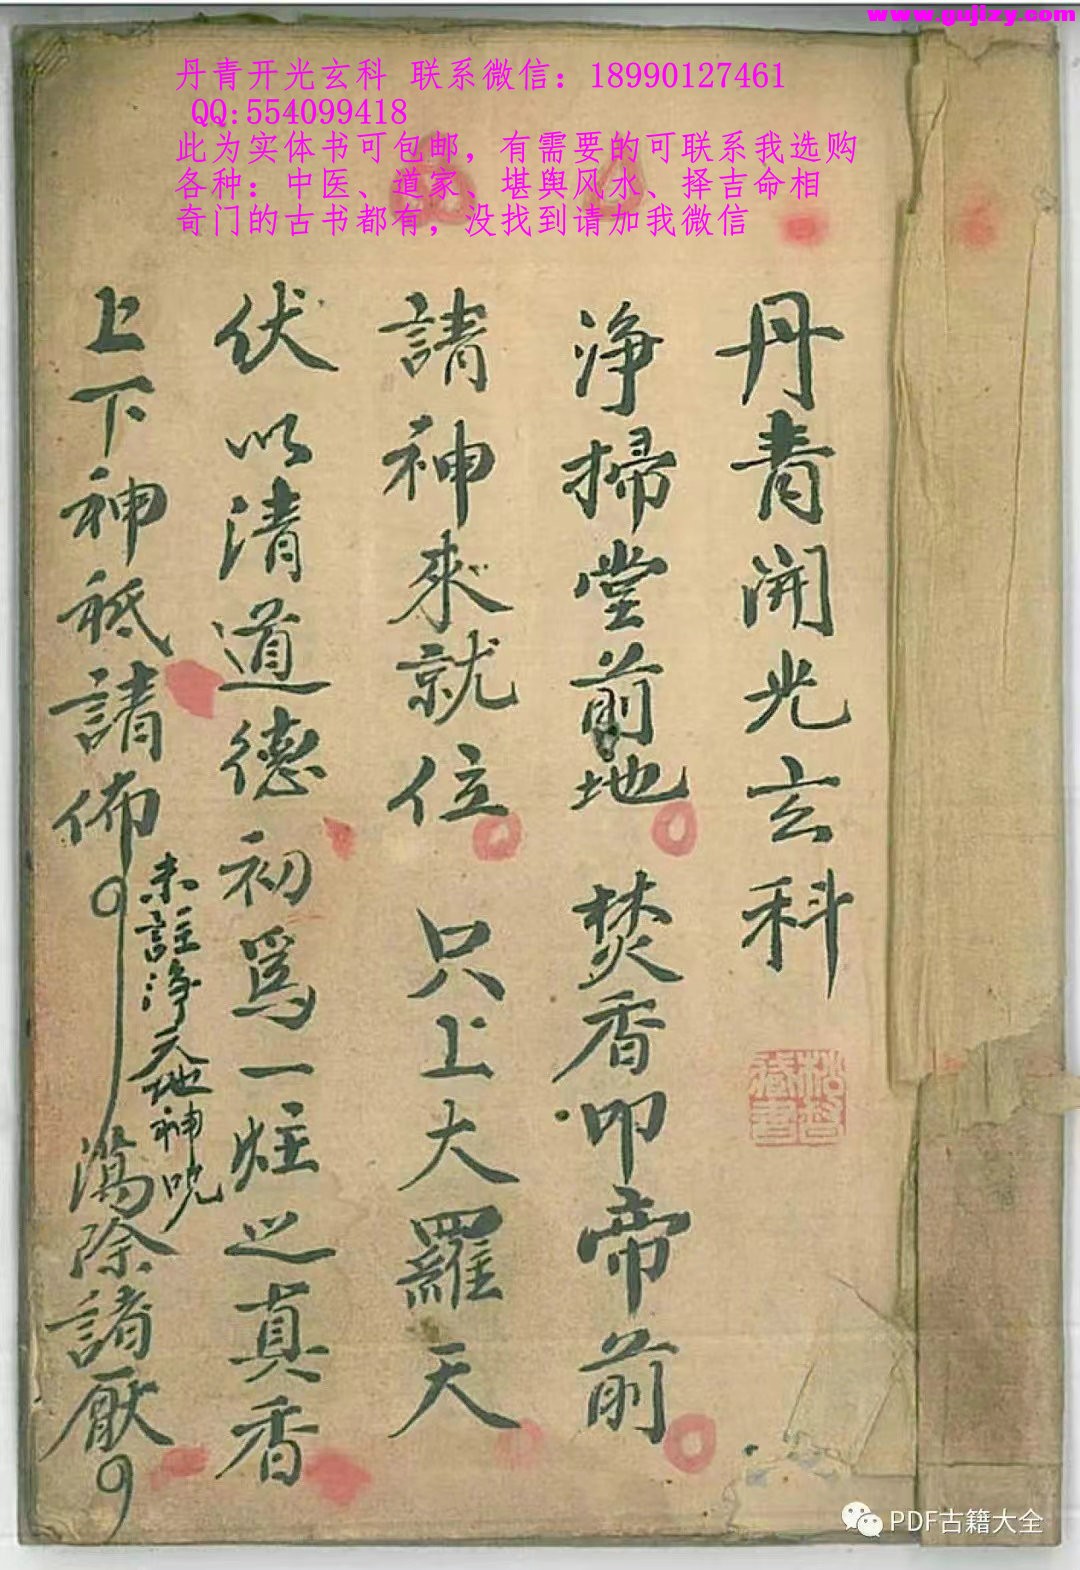 www.gujizy.com
丹青开光玄科 联系微信：18990127461
QQ:554099418
此为实体书可包邮，有需要的可联系我选购
各种：中医、道家、堪舆风水、择吉命相
奇门的古书都有，没找到请加我微信
丹青開光玄科
淨掃堂前地 焚香叩帝前
請神來就位 只上大羅天
伏以清道德初爲一炷之真香
上下神祇請佈
未註淨天地神咒
蕩除諸厭
PDF古籍大全